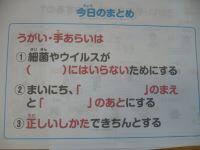 今日のまとめ
うがい・手あらいは
①細菌やウイルスが
(　　　)にはいらないためにする
②まいにち、「　　　」のまえ
と「　　　」のあとにする
③正しいしかたできちんとする